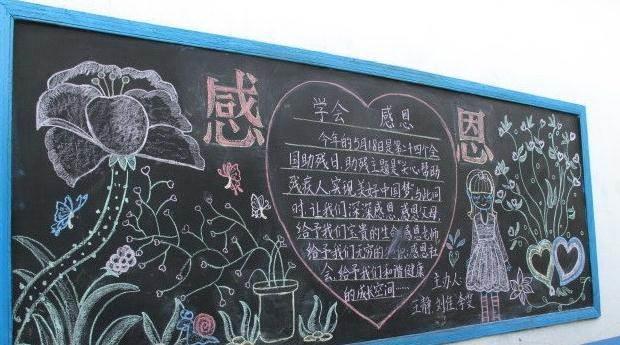 感 恩
学会 感恩
今年的5月18日是第二十四个全
国助残日,助残主题是"关心帮助
残疾人,实现美好中国梦"与此同
时,让我们深深感恩,感恩父母
给予我们宝贵的生命,感恩老师
给予我们无穷的 识,感恩社
会,给予我们和谐健康
的成长空间……
主办人:
王静,刘佳,